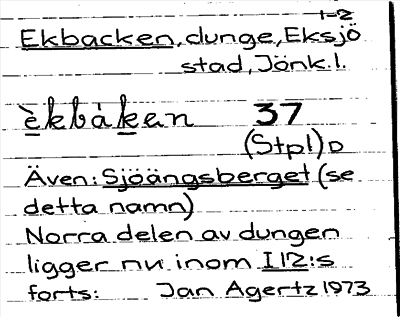 1-2
Ekbacken, dunge, Eksjö
stad, Jönk. l.
èkbàkan 37
(Stpl) D
Även: Sjöängsberget (se
detta namn)
Norra delen av dungen
ligger nu inom I 12:s
forts: Jan Agertz 1973